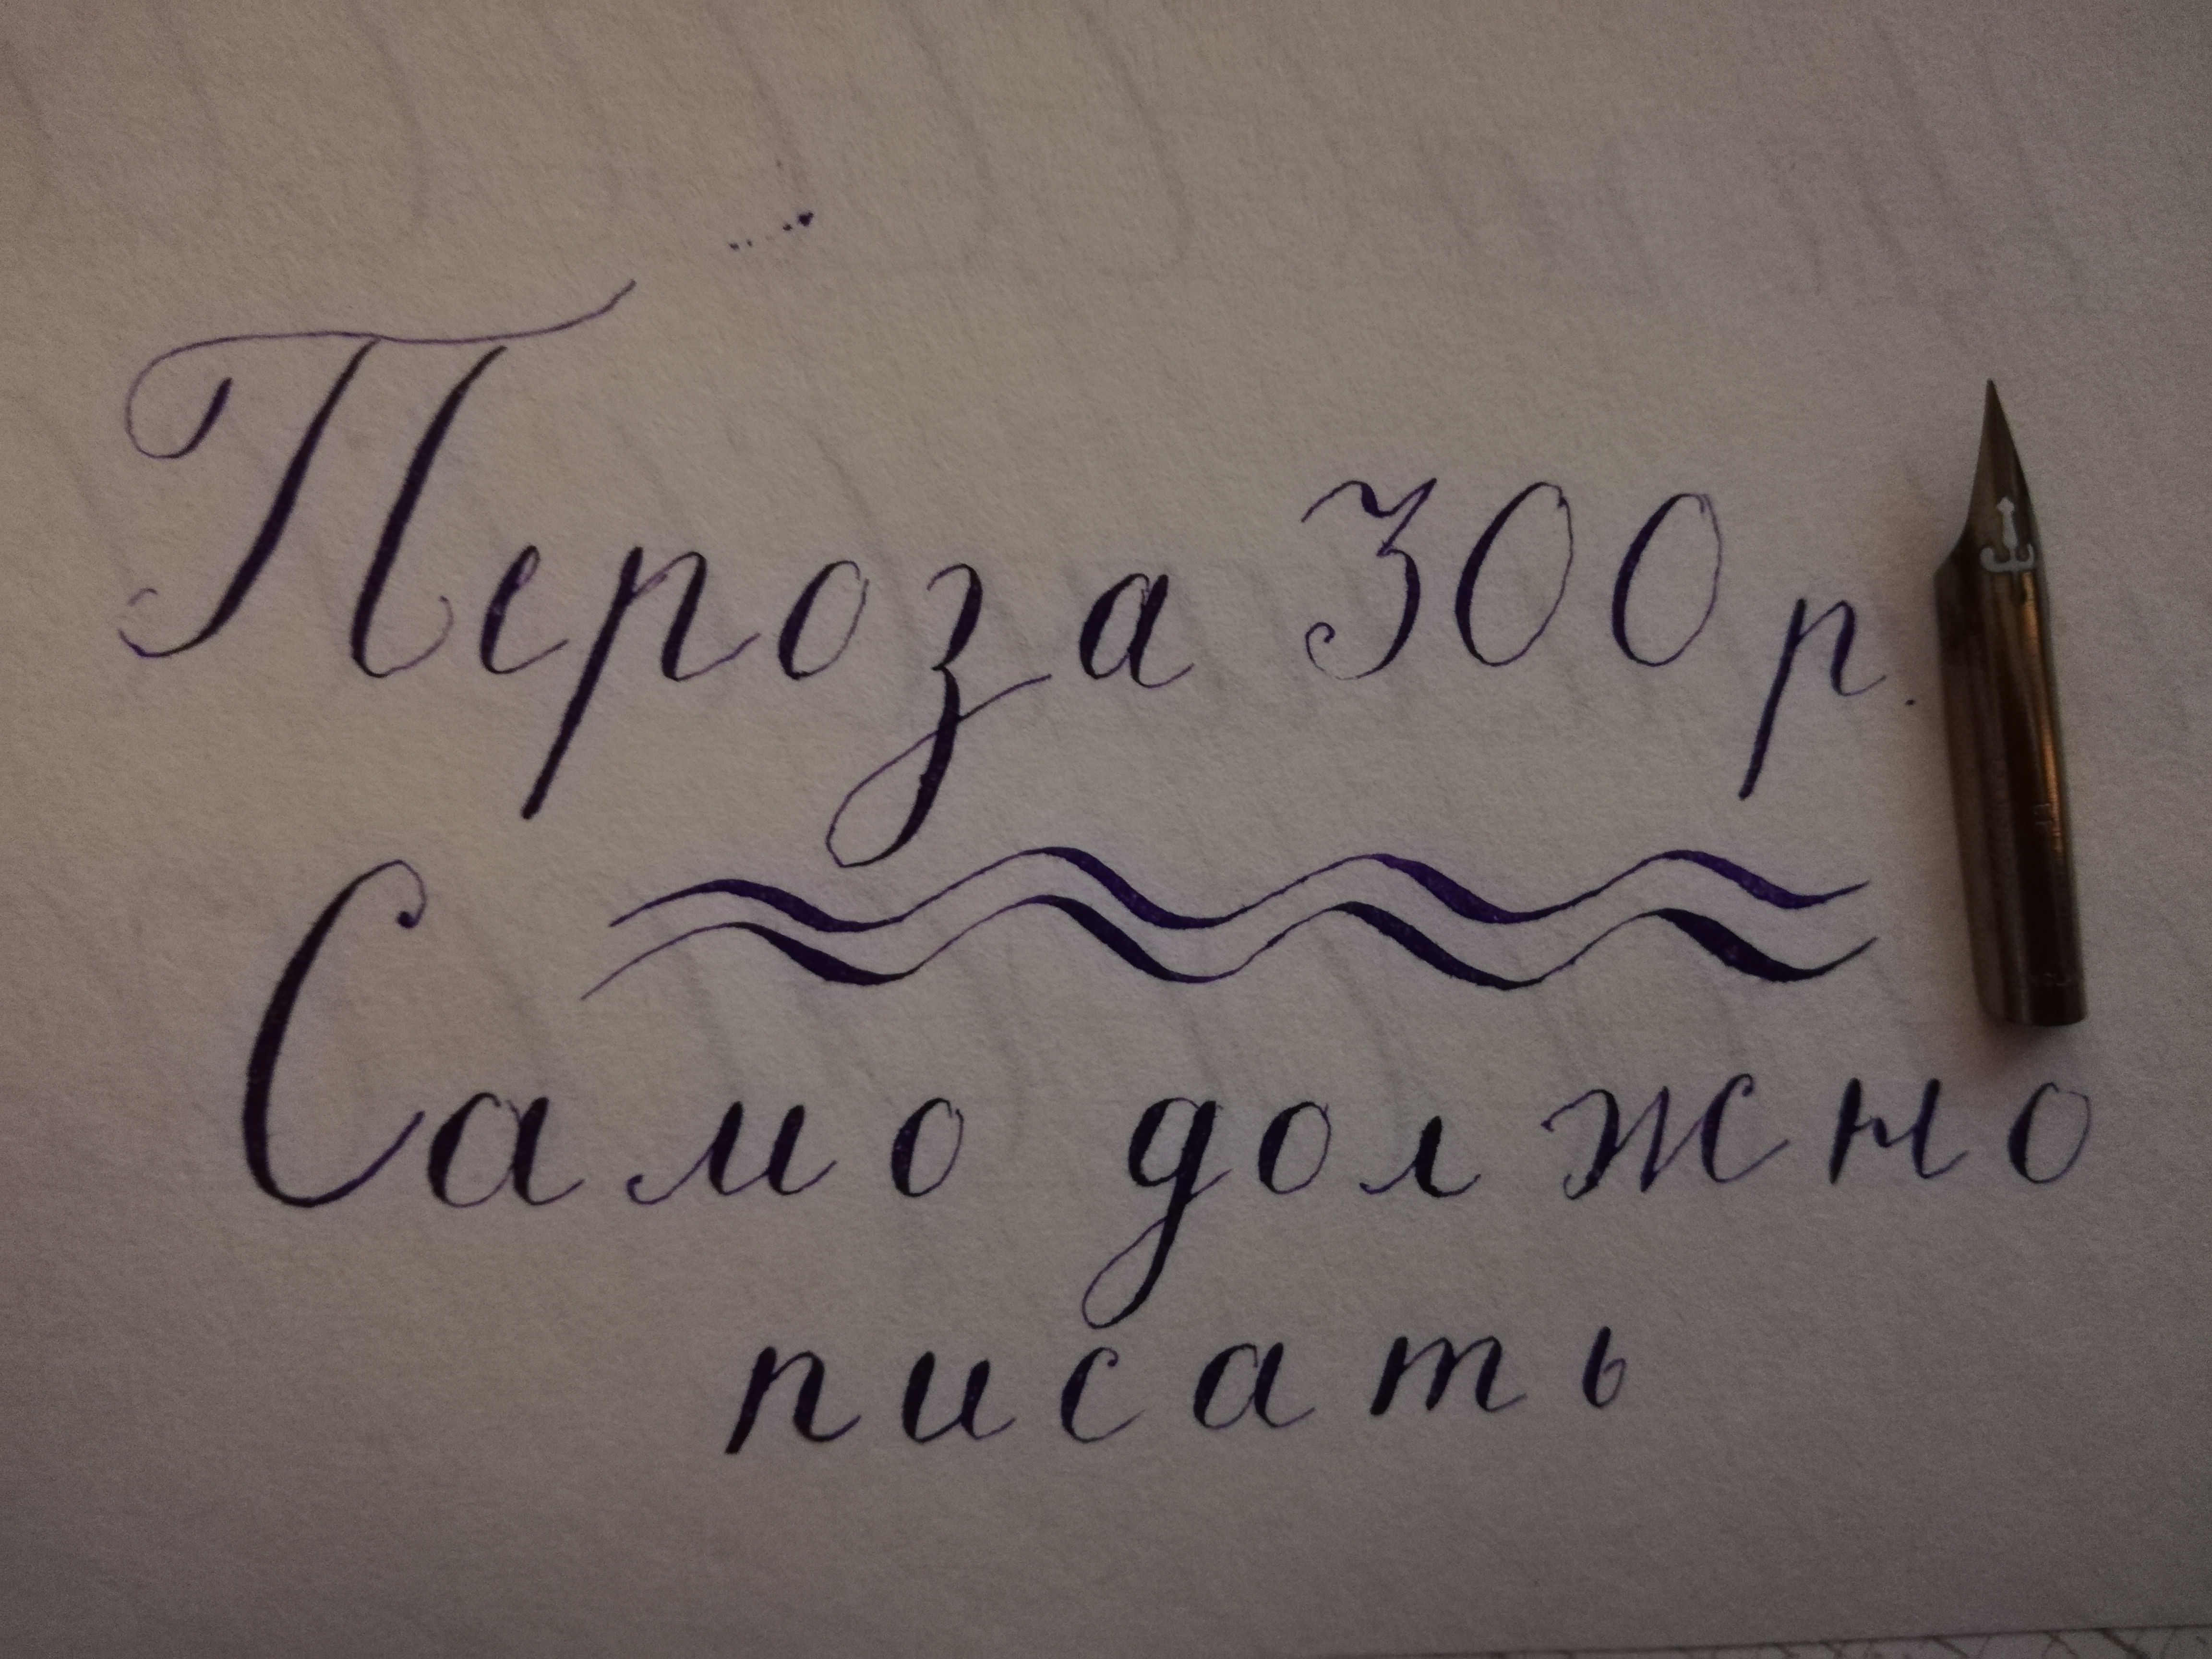 Пероза 300 р.
Само должно
писать